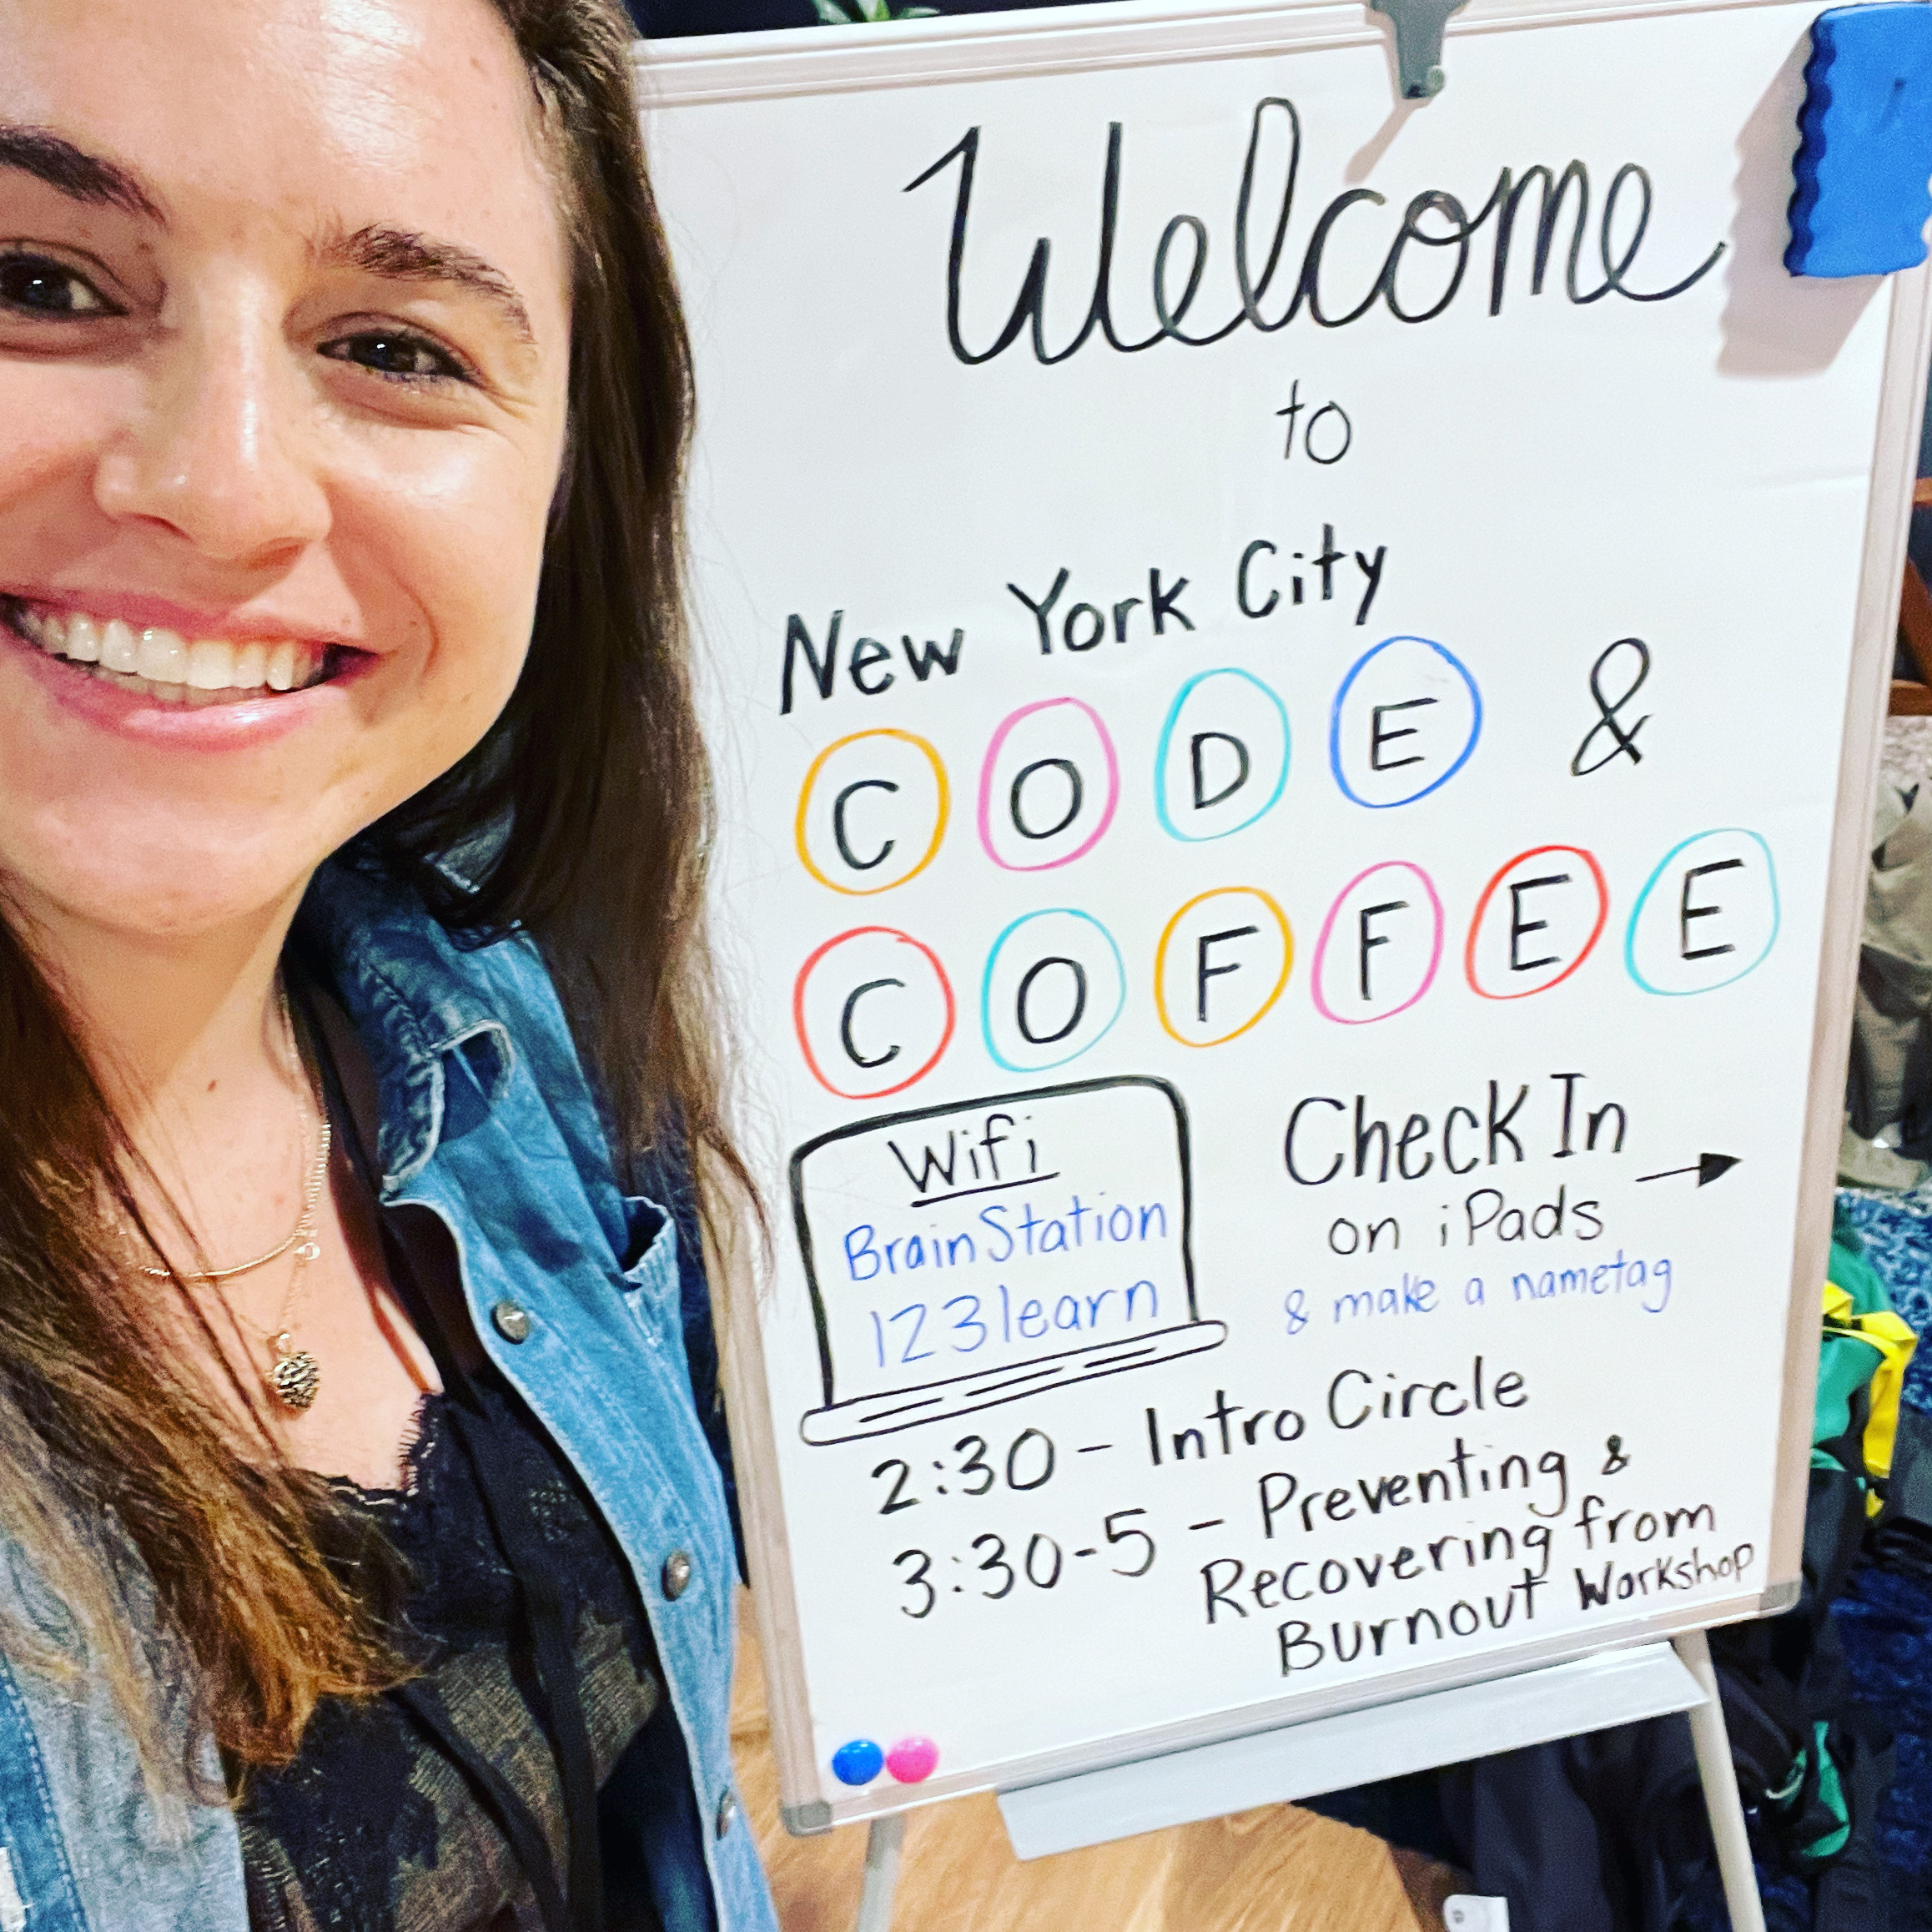 Welcome
to
New York City
CODE &
COFFEE
Wifi
BrainStation
123learn
Check In
on iPads
& make a nametag
2:30 - Intro Circle
3:30-5 - Preventing &
Recovering from
Burnout Workshop